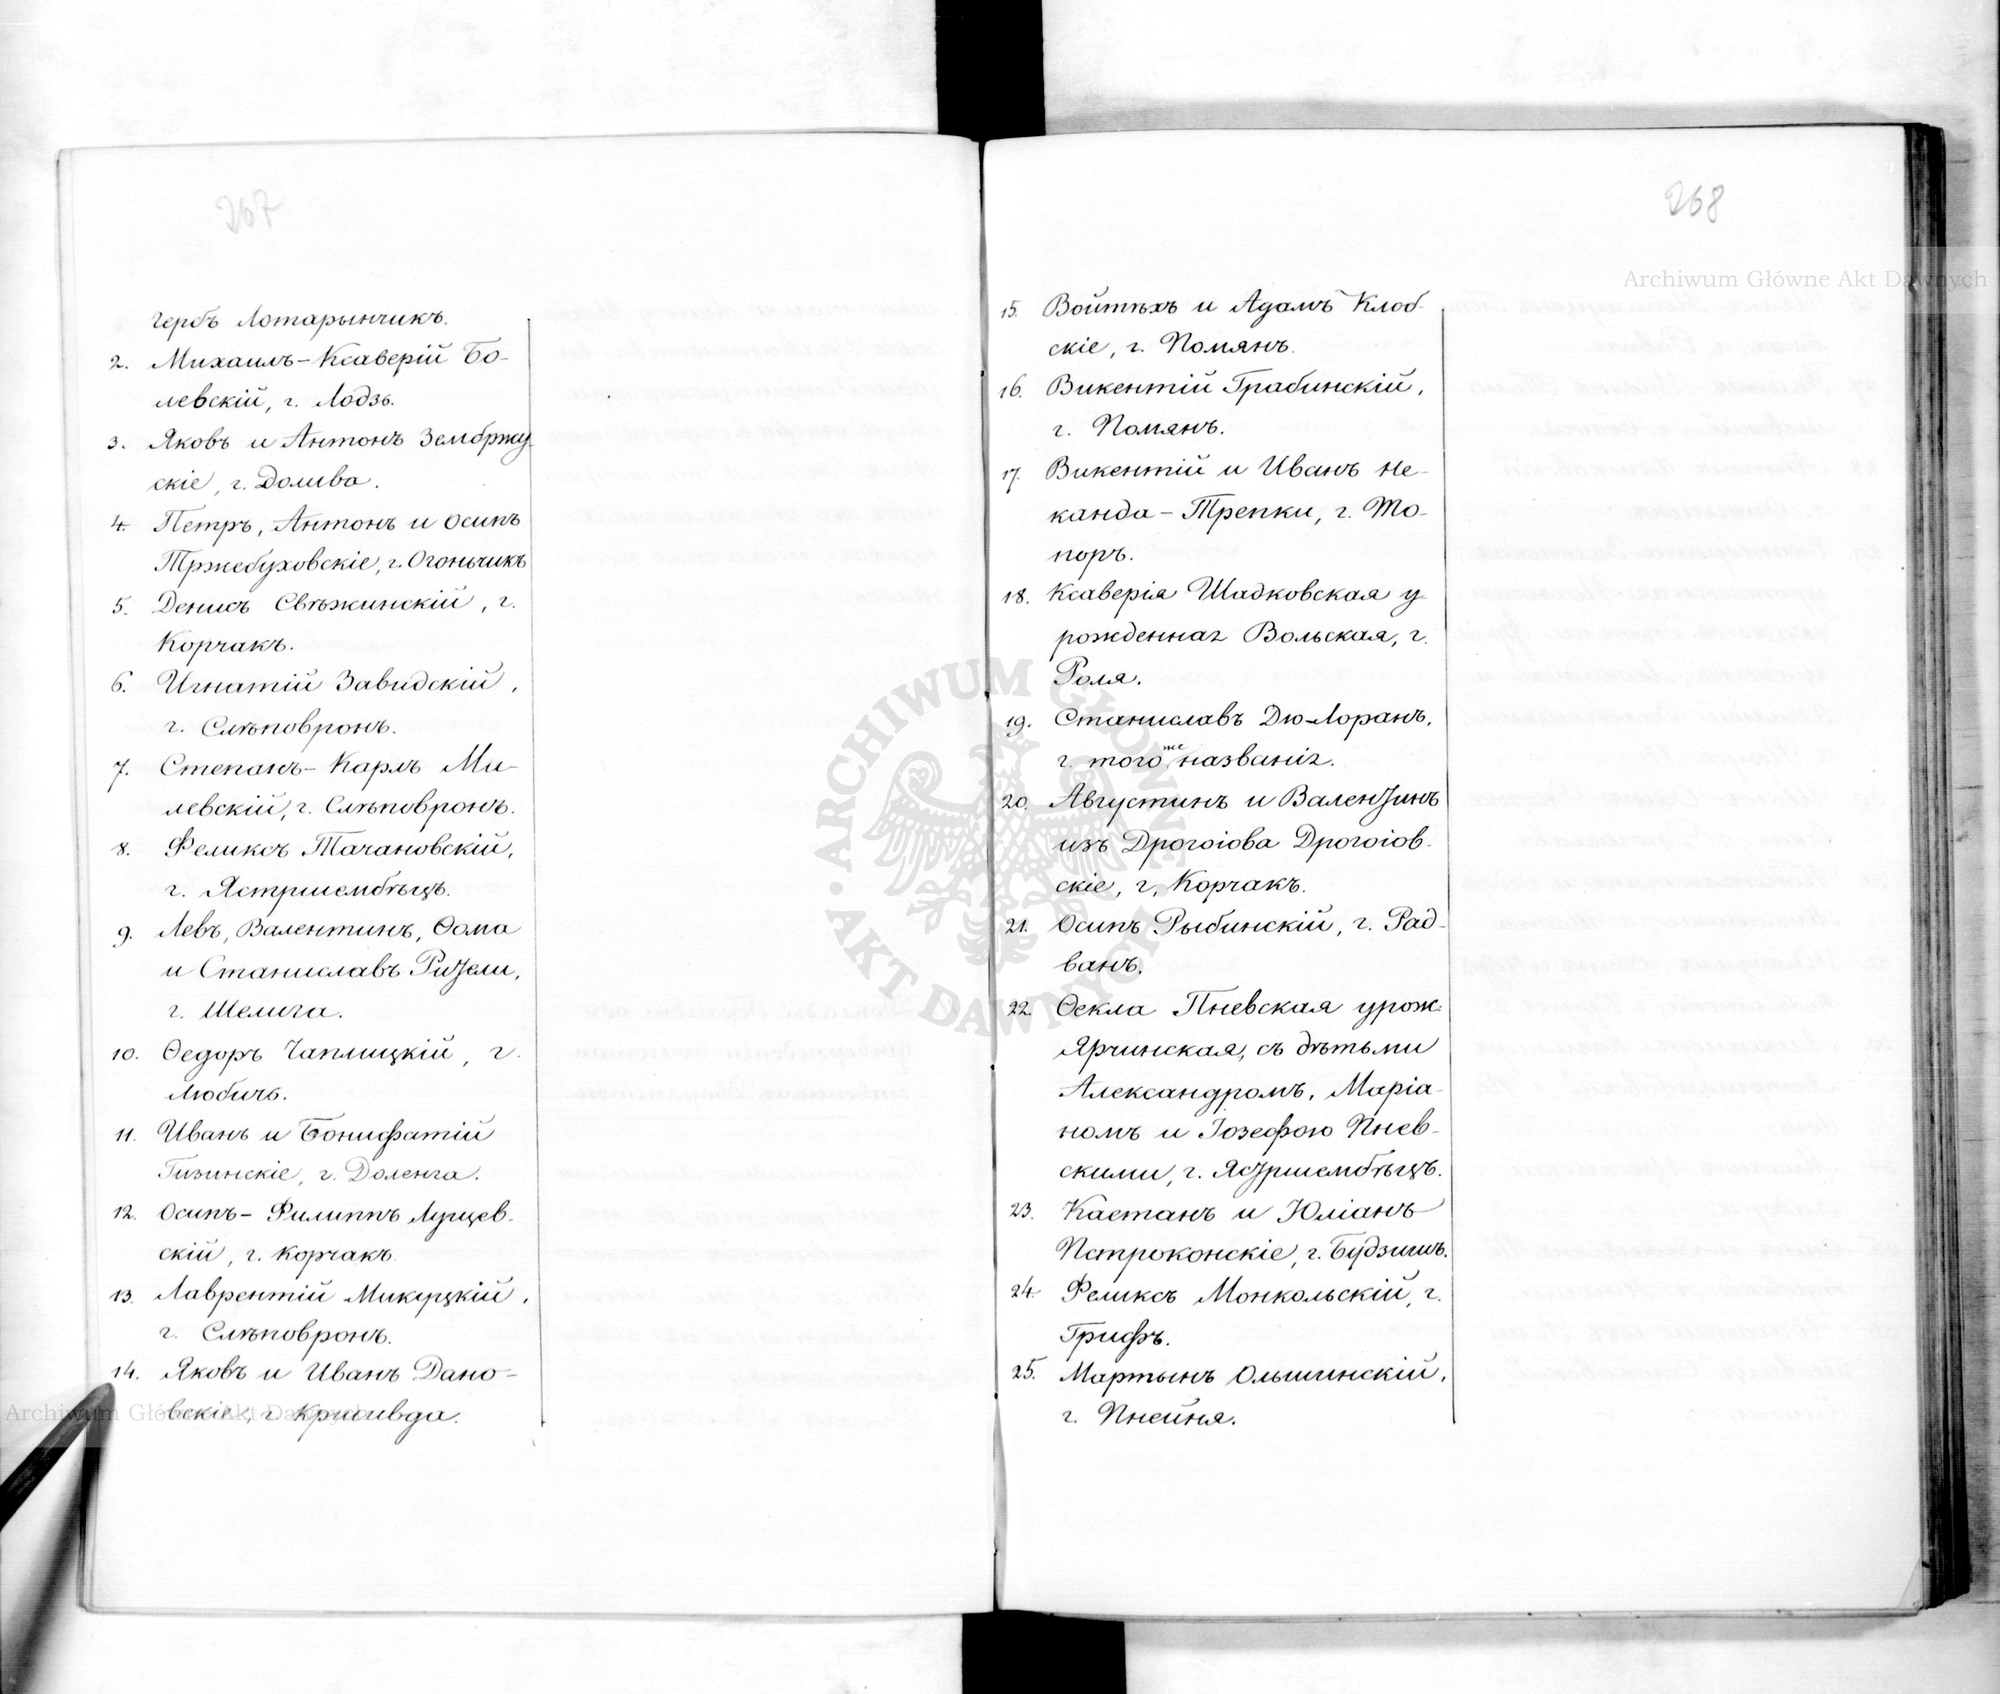 267
гербъ Лотарынчикъ.
2. Михаилъ-Ксаверій Бо-
левскій, г. Лодзь.
3. Яковъ и Антонъ Зембржу-
скіе, г. Долива.
4. Петръ, Антонъ и Осипъ
Тржебуховскіе, г. Огончикъ
5. Денисъ Свѣжинскій, г.
Корчакъ.
6. Игнатій Завидскій,
г. Слѣповронъ.
7. Степанъ-Карлъ Ми-
левскій, г. Слѣповронъ.
8. Феликсъ Тачановскій,
г. Ястршембѣцъ.
9. Левъ, Валентинъ, Ѳома
и Станиславъ Ридели,
г. Шелига.
10. Ѳедоръ Чаплицкій, г.
Любичъ.
11. Иванъ и Бонифатій
Гизинскіе, г. Доленга.
12. Осипъ-Филиппъ Лущев-
скій, г. Корчакъ.
13. Лаврентій Микуцкій,
г. Слѣповронъ.
14. Яковъ и Иванъ Дано-
вскіе, г. Кришвда.
268
15. Войтѣхъ и Адамъ Клоб-
скіе, г. Помянъ.
16. Викентій Грабинскій,
г. Помянъ.
17. Викентій и Иванъ Не-
канда-Трепки, г. То-
поръ.
18. Ксаверія Шадковская у
рожденная Вольская, г.
Роля.
19. Станиславъ Дю-Лоранъ,
г. того же названія.
20. Августинъ и Валентинъ
изъ Дрогоіова Дрогоіов-
скіе, г. Корчакъ.
21. Осипъ Рыбинскій, г. Рад-
ванъ.
22. Ѳекла Пневская урож:
Ярчинская, съ дѣтьми
Александромъ, Маріа-
номъ и Іозефою Пнев-
скими, г. Ястршембѣцъ.
23. Каетанъ и Юліанъ
Пстроконскіе, г. Будзишъ.
24. Феликсъ Монкольскій, г.
Грифъ.
25. Мартынъ Ольшинскій,
г. Пнейня.
Archiwum Główne Akt Dawnych
Archiwum Główne Akt Dawnych
ARCHIWUM GŁÓWNE
AKT DAWNYCH